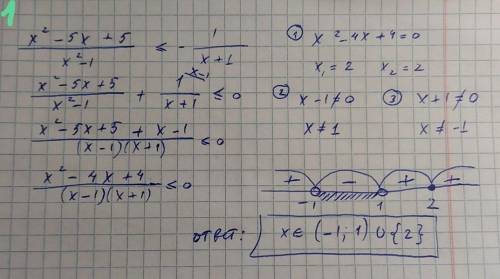 1
(x² - 5x + 5)/(x² - 1) ≤ - 1/(x + 1)
(x² - 5x + 5)/(x² - 1) + 1^(x-1)/(x + 1) ≤ 0
(x² - 5x + 5 + x - 1)/((x - 1)(x + 1)) ≤ 0
(x² - 4x + 4)/((x - 1)(x + 1)) ≤ 0
① x² - 4x + 4 = 0
x₁ = 2 x₂ = 2
② x - 1 ≠ 0 ③ x + 1 ≠ 0
x ≠ 1 x ≠ -1
+ - + +
-1 1 2
ответ: x ∈ (-1; 1) ∪ {2}